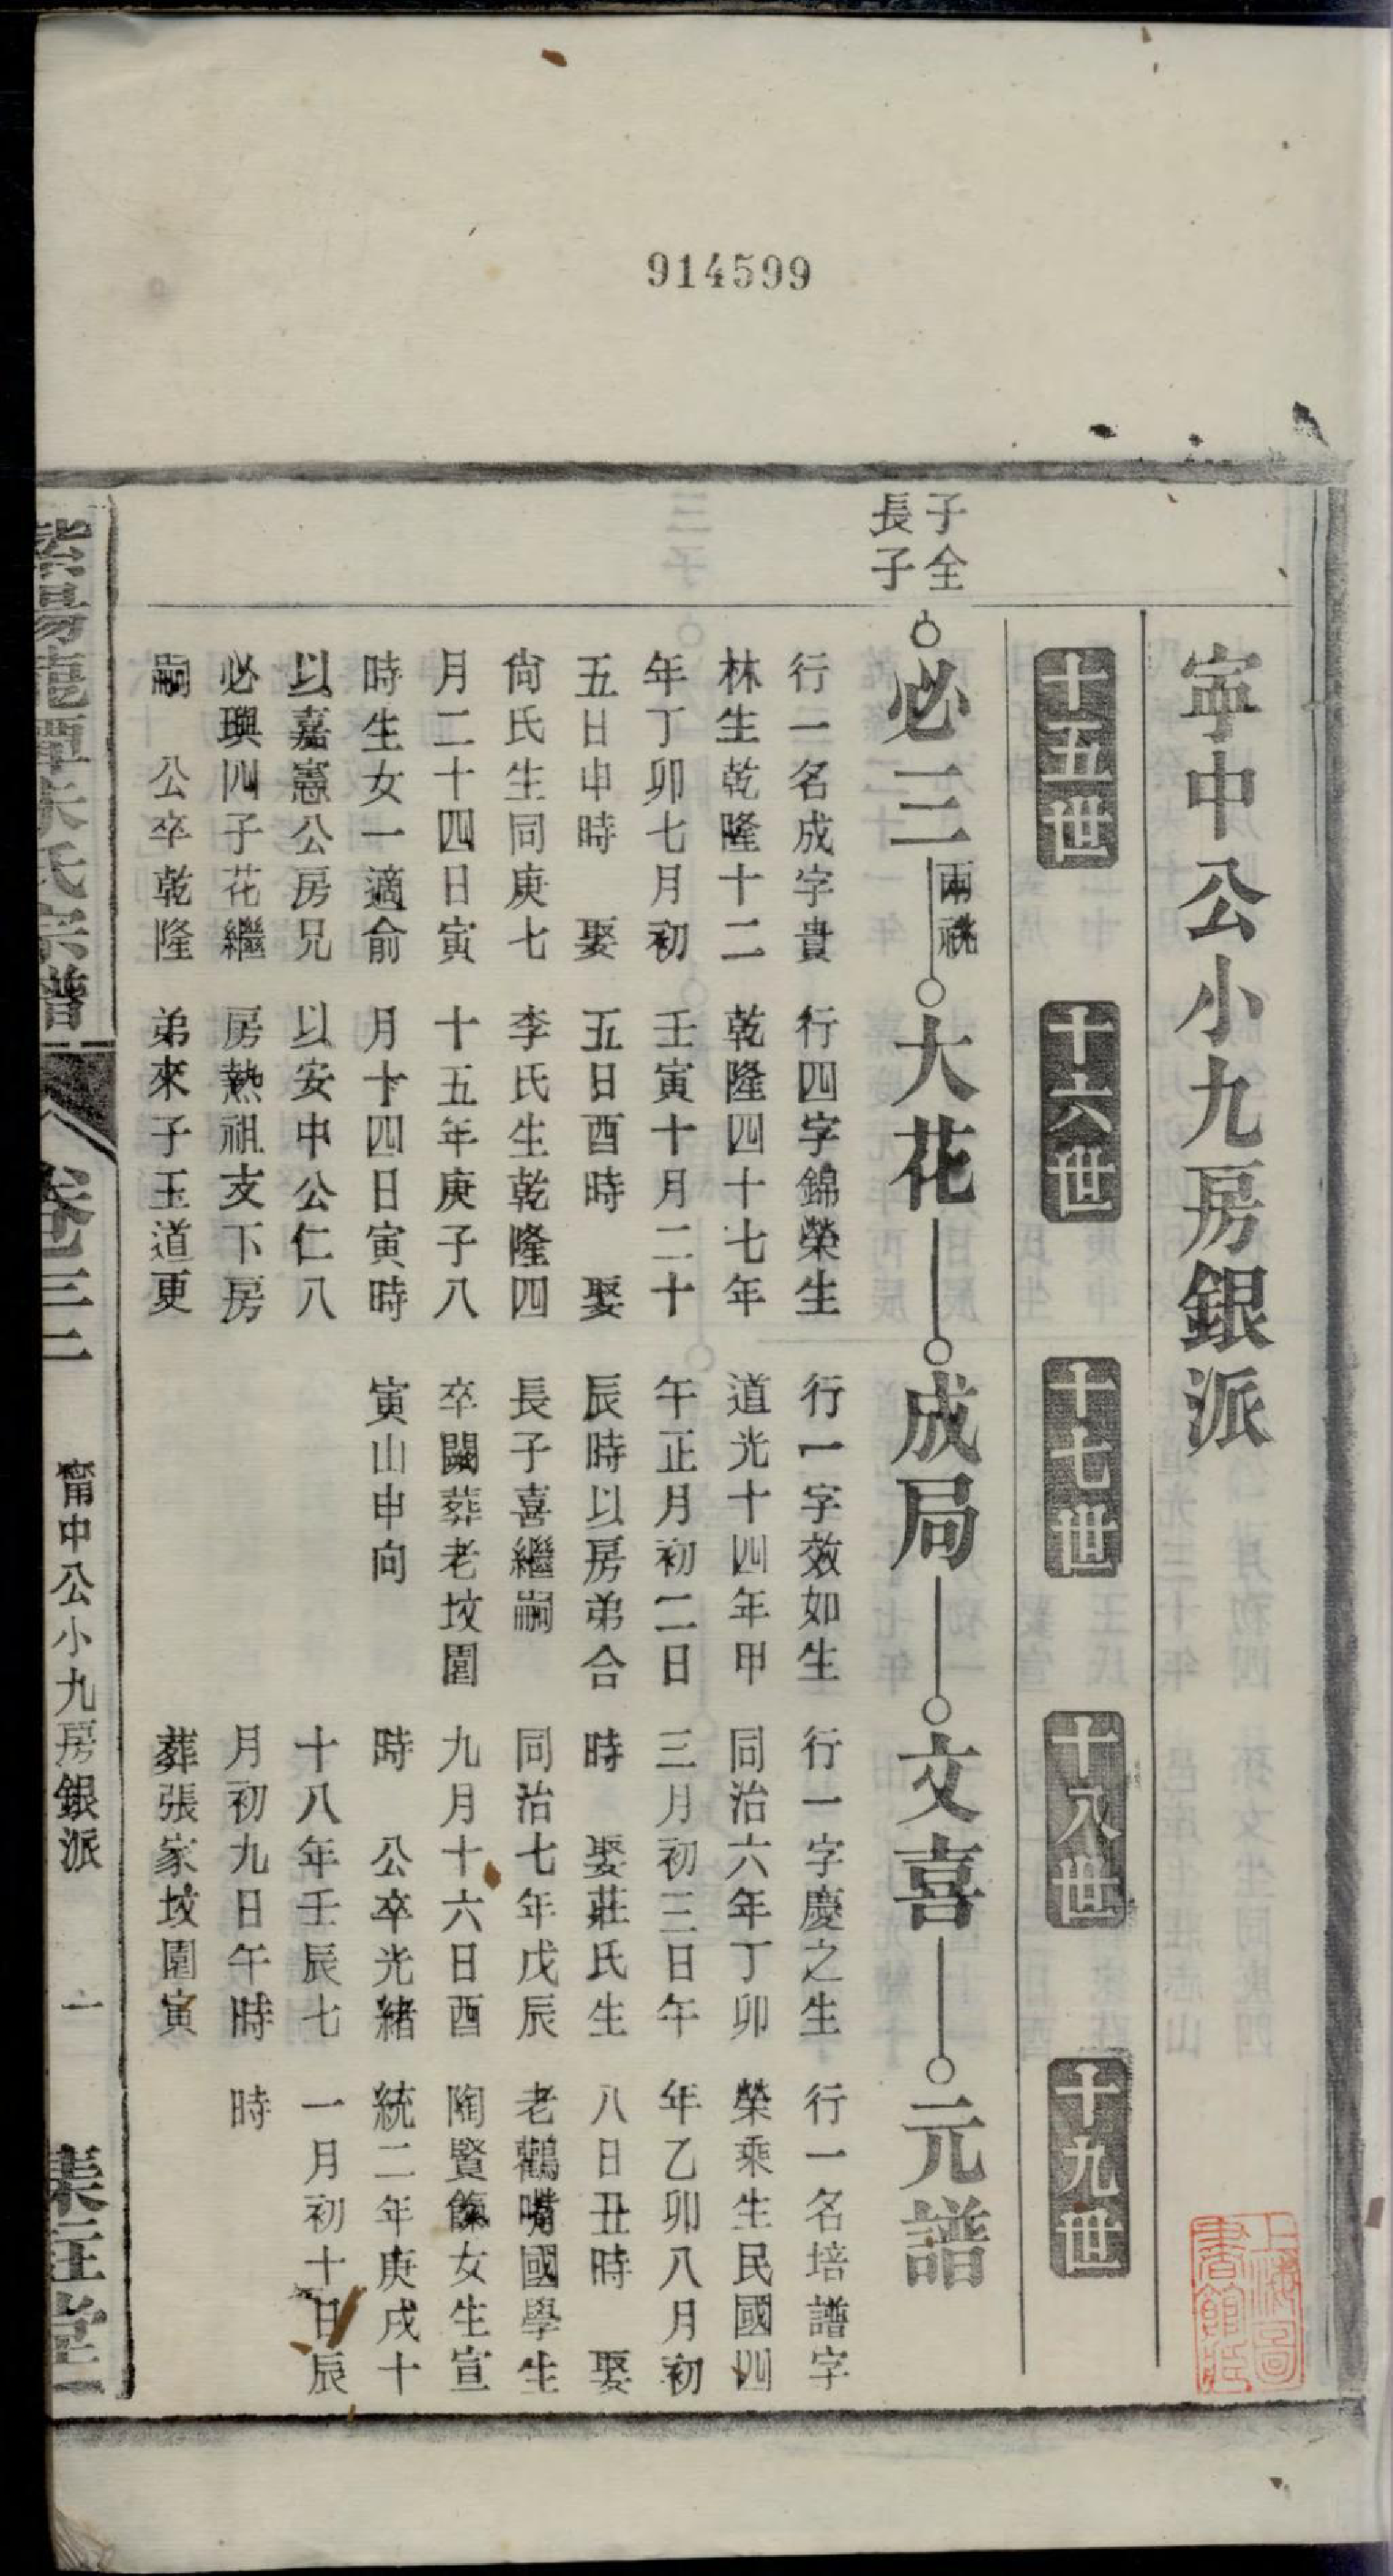 914599
寗中公小九房銀派
十五世
十六世
十七世
十八世
十九世
子全
長子
必三
兩祧
大花
成局
文喜
元譜
行一名成字貴
林生乾隆十二
年丁卯七月初
五日申時　娶
尙氏生同庚七
月二十四日寅
時生女一適俞
以嘉憲公房兄
必璵四子花繼
嗣　公卒乾隆
行四字錦榮生
乾隆四十七年
壬寅十月二十
五日酉時　娶
李氏生乾隆四
十五年庚子八
月十四日寅時
以安中公仁八
房熱祖支下房
弟來子玉道更
行一字效如生
道光十四年甲
午正月初二日
辰時以房弟合
長子喜繼嗣
卒闕葬老坟園
寅山申向
行一字慶之生
同治六年丁卯
三月初三日午
時　娶莊氏生
同治七年戊辰
九月十六日酉
時　公卒光緒
十八年壬辰七
月初九日午時
葬張家坟園寅
行一名培譜字
榮乘生民國四
年乙卯八月初
八日丑時　娶
老鸛嘴國學生
陶賢餼女生宣
統二年庚戌十
一月初十日辰
時
龍潭朱氏宗譜
卷三二
甯中公小九房銀派
一
上海圖
書館藏